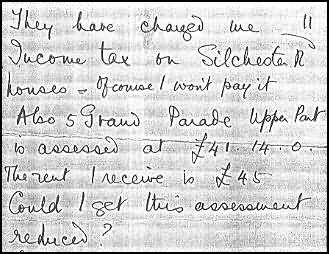 They have charged me 11
Income tax on Silchester R
houses - Of course I won't pay it
Also 5 Grand Parade Upper Part
is assessed at £41.14.0.
The rent I receive is £45
Could I get this assessment
reduced?